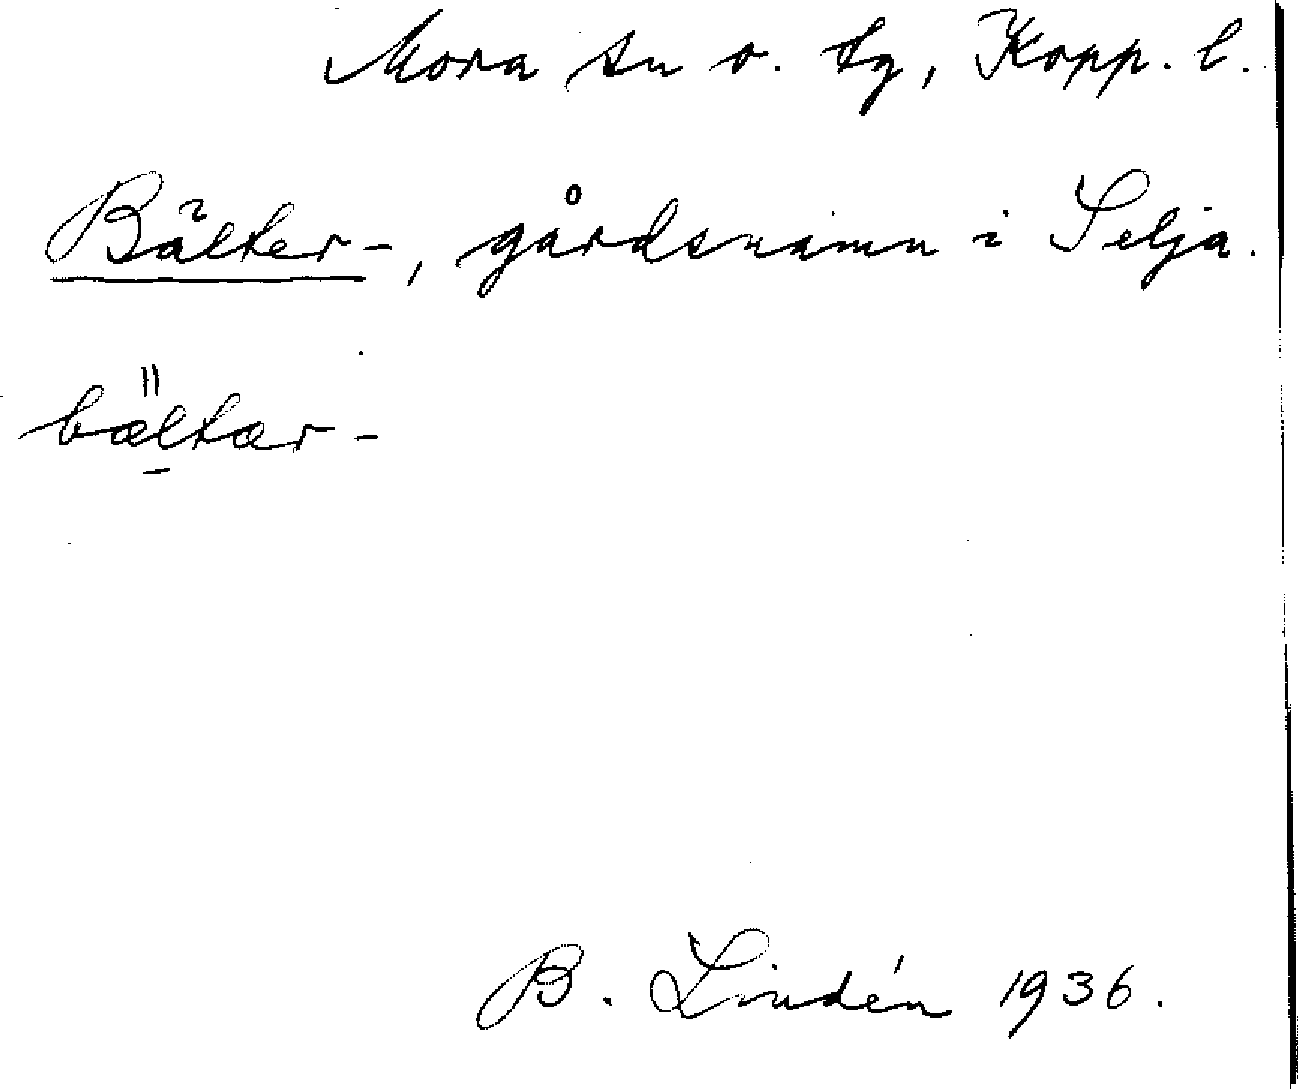 Mora sn o. tg, Kopp. l.
Bälter-, gårdsnamn i Selja.
bæltær-
B. Lindén 1936.